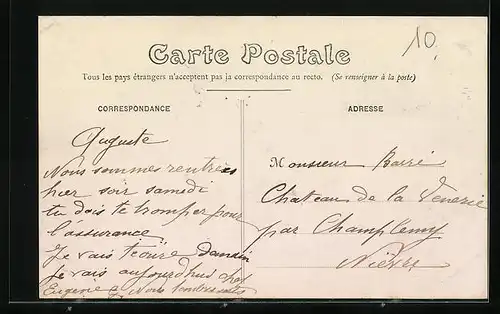 10
Carte Postale
Tous les pays étrangers n'acceptent pas la correspondance au recto. (Se renseigner à la poste)
CORRESPONDANCE
ADRESSE
Auguste
Nous sommes rentrées
hier soir samedi
tu dois te tromper pour
l'assurance
Je vais t'ecrire demain
je vais aujourd'hui chez
Eugenie Nous
Monsieur Barré
Chateau de la Venerie
par Champlemy
Nièvre